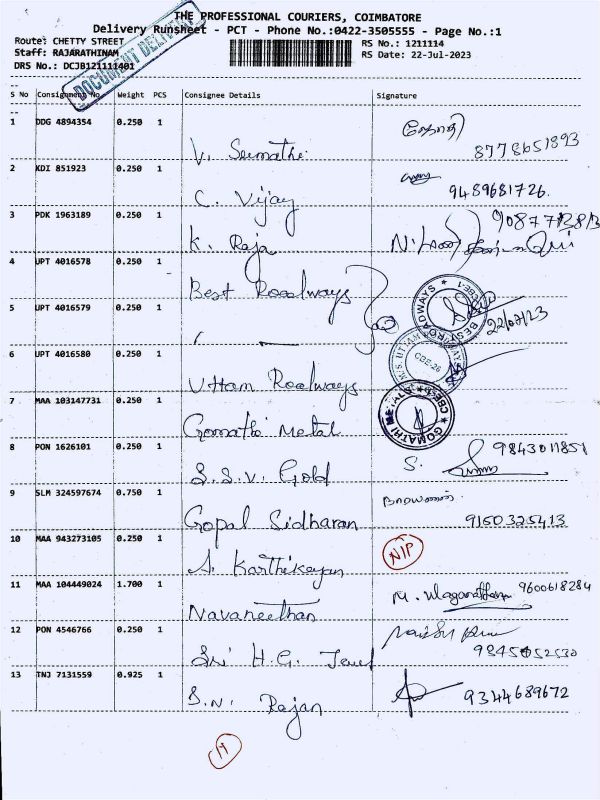 THE PROFESSIONAL COURIERS, COIMBATORE
Delivery Runsheet - PCT - Phone No.:0422-3505555 - Page No.:1
Route: CHETTY STREET
RS No.: 1211114
Staff: RAJARATHINAM
RS Date: 22-Jul-2023
DRS No.: DCJB121111401
DOCUMENT DELIVERY
S No Consignment No. Weight PCS Consignee Details Signature
1 DDG 4894354 0.250 1
V. Sumathi 8778651893
2 KDI 851923 0.250 1
C. Vijay 9489681726
3 PDK 1963189 0.250 1
K. Raja
4 UPT 4016578 0.250 1
Best Roadways
BEST ROADWAYS CBE-1
5 UPT 4016579 0.250 1
22/07/23
6 UPT 4016580 0.250 1
Uttam Roadways
CBE-26
7 MAA 103147731 0.250 1
Gomathi Metal
GOMATHI METALS CBE-1
8 PON 1626101 0.250 1
S.S.V. Gold 9843011851
9 SLM 324597674 0.750 1
Gopal Sidharan 9150325413
10 MAA 943273105 0.250 1
A. Karthikeyan N/P
11 MAA 104449024 1.700 1
Navaneethan 9600618284
12 PON 4546766 0.250 1
Sri H.G. Jewel
13 TNJ 7131559 0.925 1
S.N. Rajan 9344689672